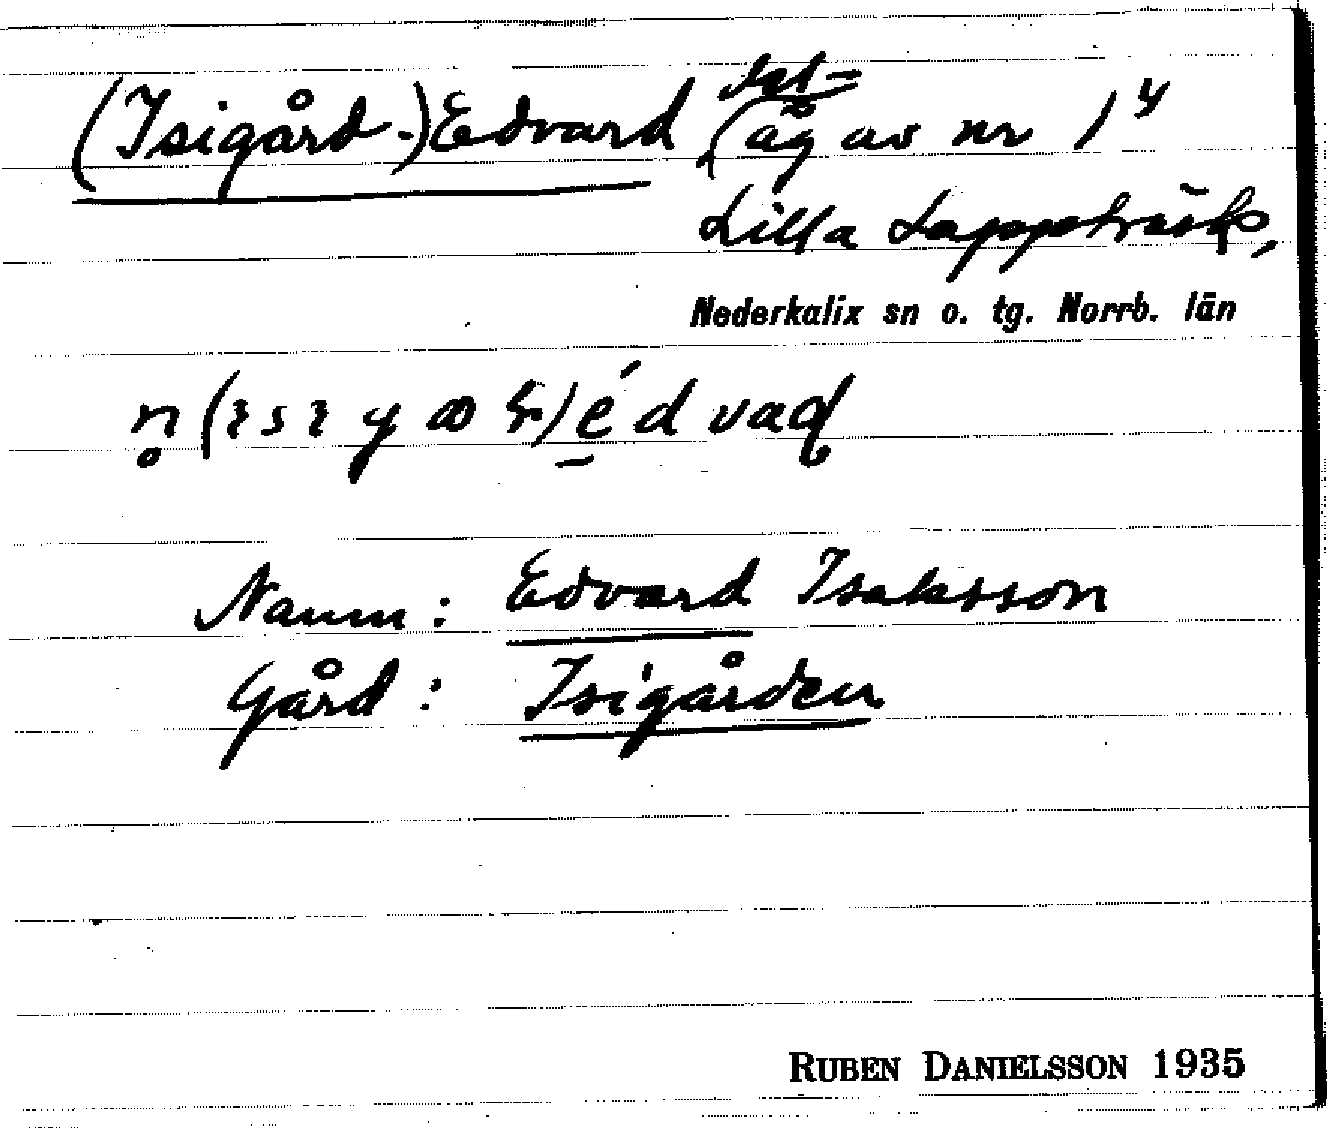 (Isigård-)Edvard (äg av nr 1⁴
Lilla Lappträsk,
Nederkalix sn o. tg. Norrb. län
Namn: Edvard Isaksson
Gård: Isigården
RUBEN DANIELSSON 1935